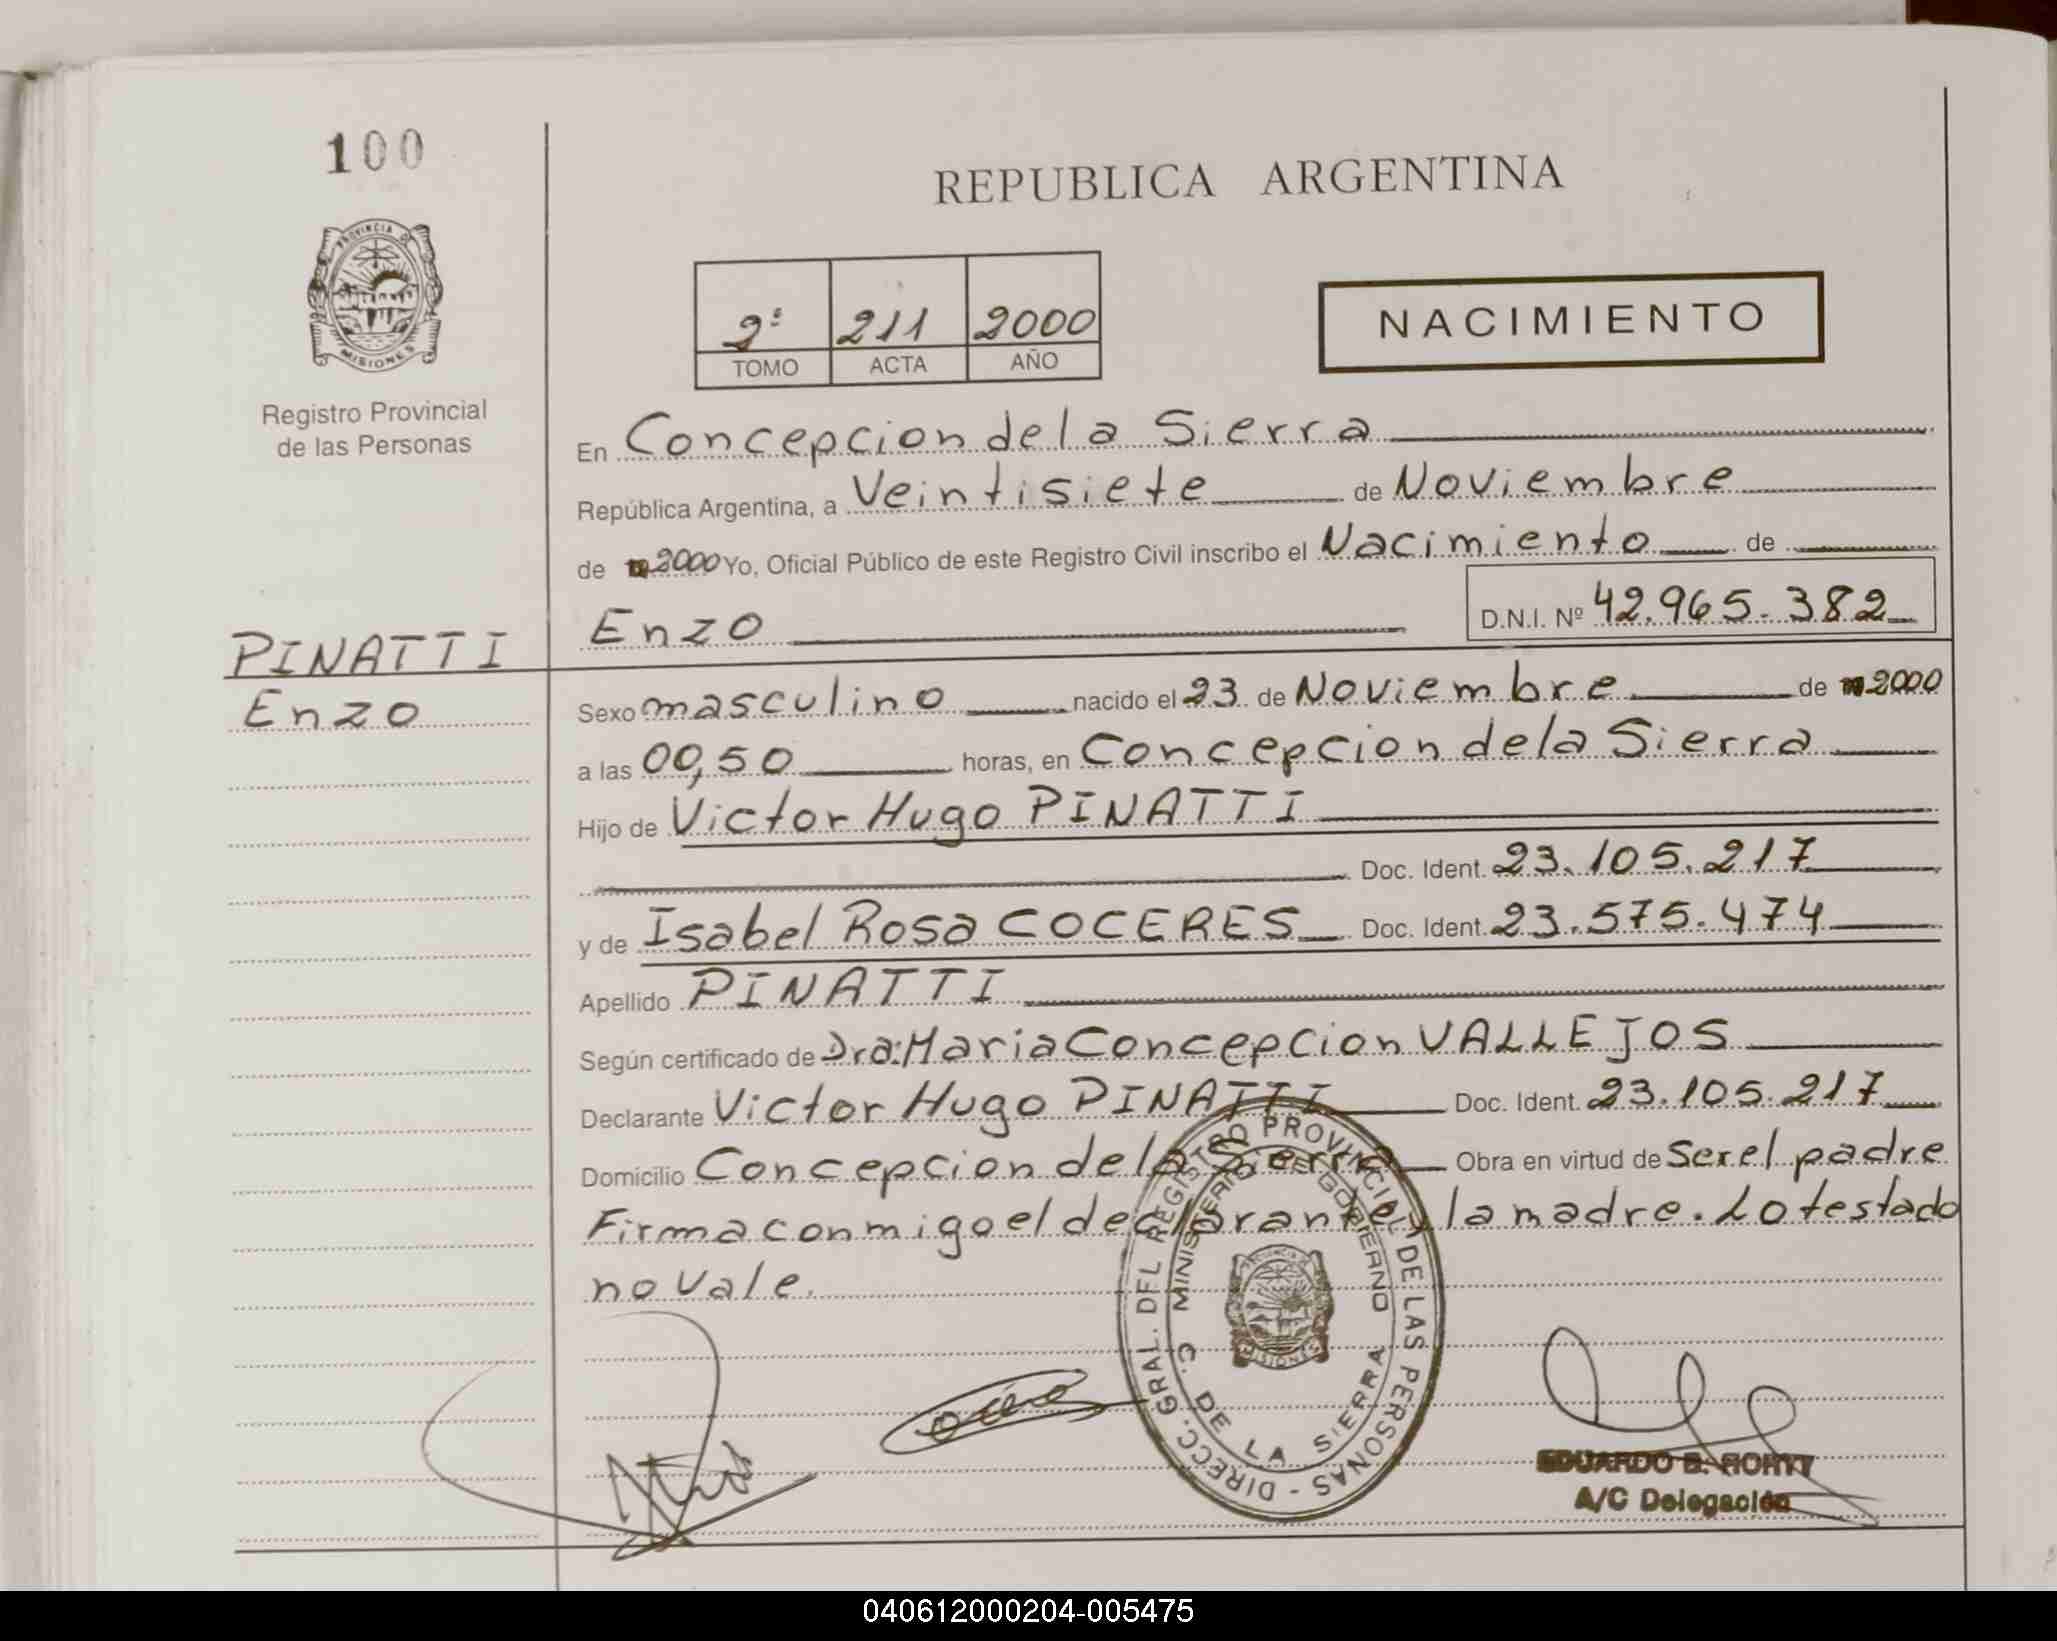 100
REPUBLICA ARGENTINA
PROVINCIA DE
MISIONES
Registro Provincial
de las Personas
2º 211 2000
TOMO ACTA AÑO
NACIMIENTO
En Concepcion de la Sierra
República Argentina, a Veintisiete de Noviembre
de 2000 Yo, Oficial Público de este Registro Civil inscribo el Nacimiento de
Enzo D.N.I. Nº 42.965.382
PINATTI
Enzo
Sexo masculino nacido el 23 de Noviembre de 2000
a las 00,50 horas, en Concepcion de la Sierra
Hijo de Victor Hugo PINATTI
Doc. Ident. 23.105.217
y de Isabel Rosa COCERES Doc. Ident. 23.575.474
Apellido PINATTI
Según certificado de Dra: Maria Concepcion VALLEJOS
Declarante Victor Hugo PINATTI Doc. Ident. 23.105.217
Domicilio Concepcion de la Sierra Obra en virtud de Ser el padre
Firma conmigo el declarante y la madre. Lo testado
no vale.
DIRECC. GRAL. DEL REGISTRO PROVINCIAL DE LAS PERSONAS -
MINISTERIO DE GOBIERNO
C. DE LA SIERRA
MISIONES
EDUARDO B.
A/C Delegación
040612000204-005475